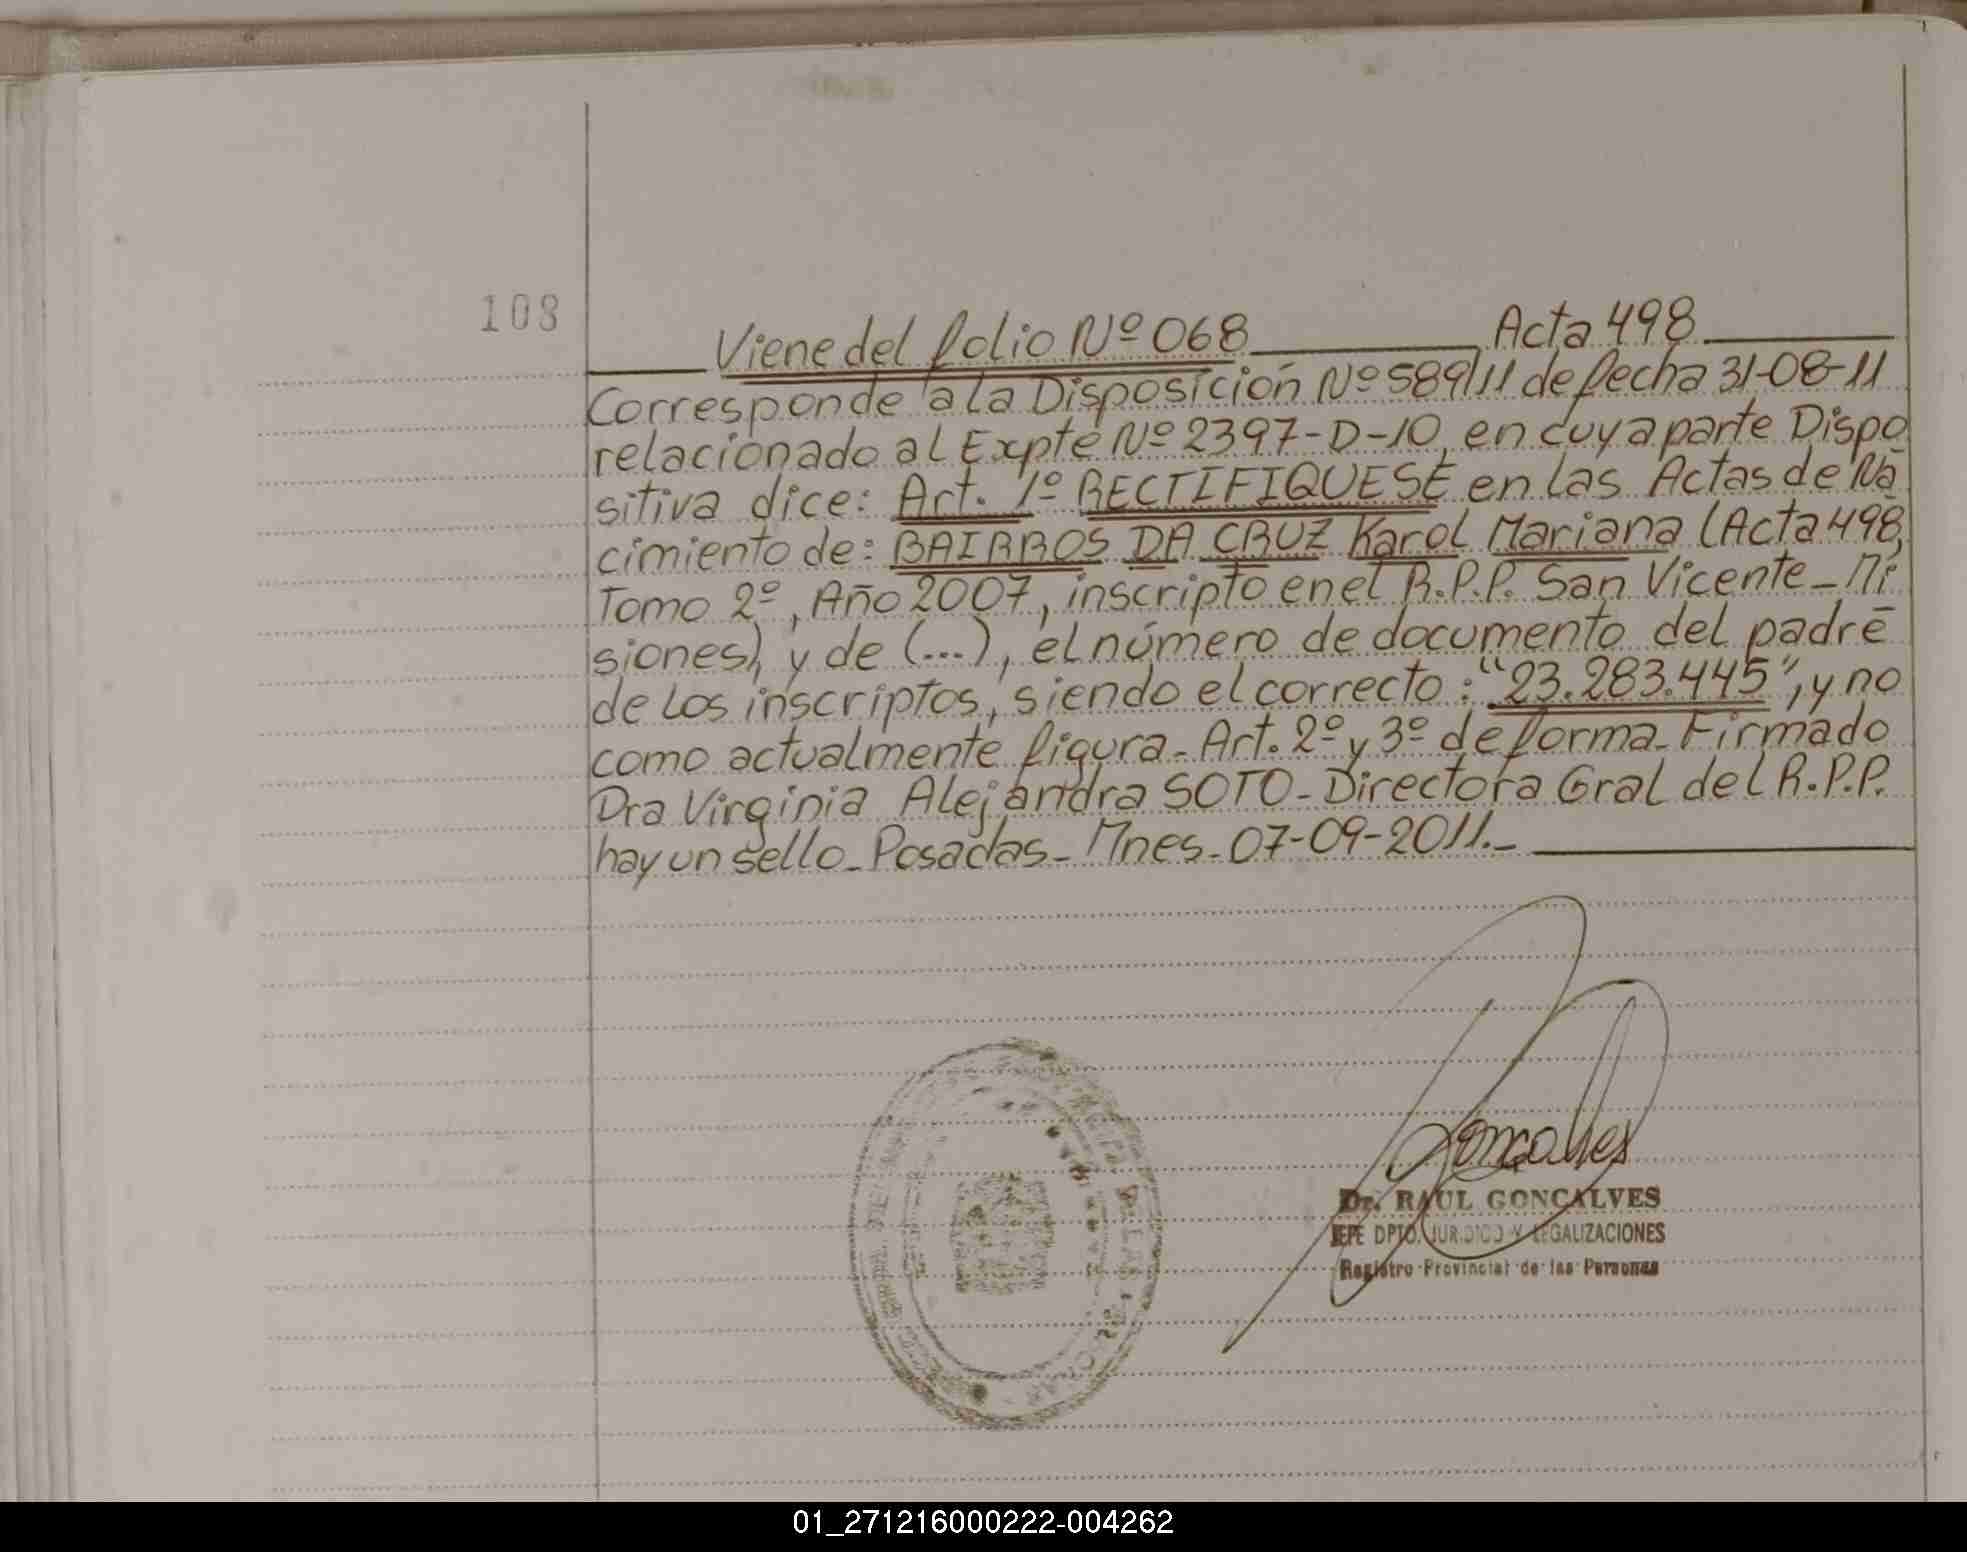 108
Viene del folio Nº 068 Acta 498
Corresponde a la Disposición Nº 589/11 de fecha 31-08-11
relacionado al Expte Nº 2397-D-10, en cuya parte Dispo
sitiva dice: Art. 1º RECTIFIQUESE en las Actas de Na
cimiento de: BAIRROS DA CRUZ Karol Mariana (Acta 498,
Tomo 2º, Año 2007, inscripto en el R.P.P. San Vicente-Mi
siones), y de (...), el número de documento del padre
de los inscriptos, siendo el correcto: "23.283.445", y no
como actualmente figura-Art. 2º y 3º de forma-Firmado
Dra Virginia Alejandra SOTO-Directora Gral del R.P.P.
hay un sello-Posadas-Mnes-07-09-2011.-
Goncalves
Dr. RAUL GONCALVES
JEFE DPTO. JURIDICO Y LEGALIZACIONES
Registro Provincial de las Personas
01_271216000222-004262